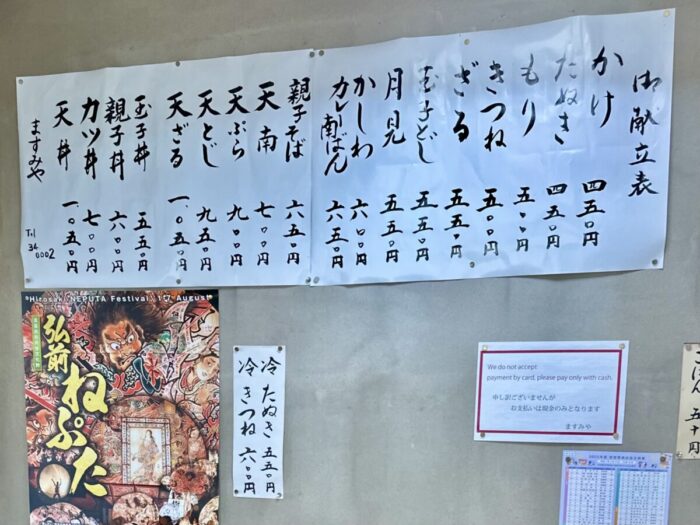 御献立表
かけ 四五〇円
たぬき 四五〇円
もり 五〇〇円
きつね 五〇〇円
ざる 五五〇円
玉子とじ 五五〇円
月見 五五〇円
かしわ 六〇〇円
カレー南ばん 六五〇円
親子そば 六五〇円
天南 七〇〇円
天ぷら 九〇〇円
天とじ 九五〇円
天ざる 一、〇五〇円
玉子丼 五五〇円
親子丼 六〇〇円
カツ丼 七〇〇円
天丼 一、〇五〇円
ますみや
Tel 34 0002
Hirosaki NEPUTA Festival
August
弘前
ねぷた
冷たぬき 五五〇円
冷きつね 六〇〇円
We do not accept
payment by card, please pay only with cash.
申し訳ございませんが
お支払いは現金のみとなります
ますみや
ごはん 五十円